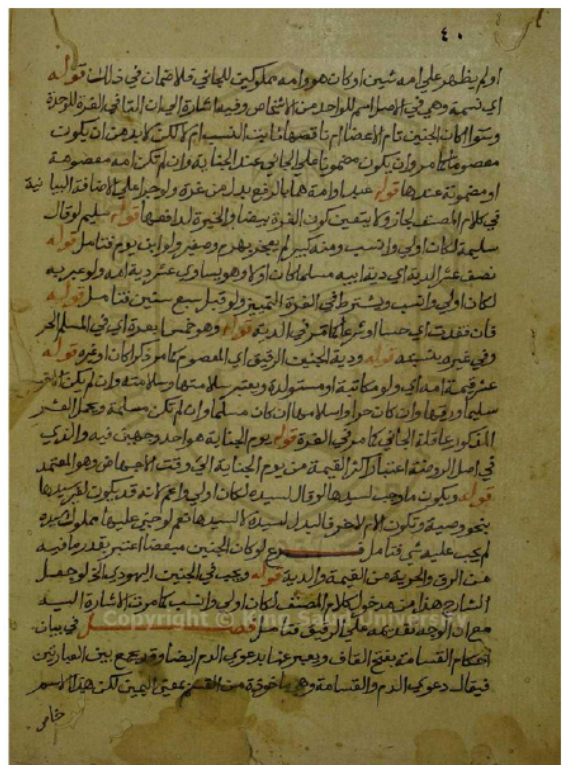 ٤٠
او لم يظهر علي امه شين او كان هو وامه مملوكين للجاني فلا ضمان في ذلك قوله
اي نسمة وهي في الاصل اسم للواحد من الاشخاص وفيه اشارة الي ان التا في الغرة للوحدة
وسوا كان الجنين تام الاعضا ام ناقصها ثابت النسب ام لا لكن لا بد من ان يكون
معصوما كما مر وان يكون مضمونا علي الجاني عند الجناية وان لم تكن امه معصومة
او مضمونة عندها قوله عبد او امة هما بالرفع بدل من غرة ولو جرا علي الاضافة البيانية
في كلام المصنف لجاز ولا يتعين كون الغرة بيضا قوله سليم لو قال
سليمة لكان اولي وانسب ومنه كبير لم يعجز بهرم وصغير ولو ابن يوم فتامل قوله
نصف عشر الدية اي دية ابيه مسلما كان او لا وهو يساوي عشر دية امه ولو عبر به
لكان اولي وانسب ويشترط في الغرة التمييز ولو قبل سبع سنين فتامل قوله
فان فقدت اي حسا او شرعا كما مر في الدية قوله وهو خمس ابعرة اي في المسلم الحر
وفي غيره بنسبته قوله ودية الجنين الرقيق اي المعصوم كما مر ذكرا كان او غيره قوله
عشر قيمة امه اي ولو مكاتبة او مستولدة ويعتبر سلامتها وسلامته وان لم يكن الاخر
سليما ورقها وان كان حرا واسلامها ان كان مسلما وان لم تكن مسلمة وتحمل العشر
المذكور عاقلة الجاني كما مر في الغرة قوله يوم الجناية هو احد وجهين فيه والذي
في اصل الروضة اعتبار اكثر القيمة من يوم الجناية الي وقت الاجهاض وهو المعتمد
قوله ويكون ما وجب لسيدها لو قال لسيده لكان اولي واعم لانه قد يكون لغير سيدها
بنحو وصية وتكون الام لاخر فالبدل لسيده لا لسيدها نعم لو جني عليها مملوك لسيده
لم يجب عليه شي فتامل فرع لو كان الجنين مبعضا اعتبر بقدر ما فيه
من الرق والحرية من القيمة والدية قوله ويجب في الجنين اليهودي الخ لو جعل
الشارح هذا من مدخول كلام المصنف لكان اولي وانسب كما مرت الاشارة اليه
مع ان الوجه تقديمه علي الرقيق فتامل فصل في بيان
Copyright © King Saud University
احكام القسامة بفتح القاف ويعبر عنها بدعوي الدم ايضا وقد يجمع بين العبارتين
فيقال دعوي الدم والقسامة وهي ماخوذة من القسم بمعني اليمين لكن هذا الاسم